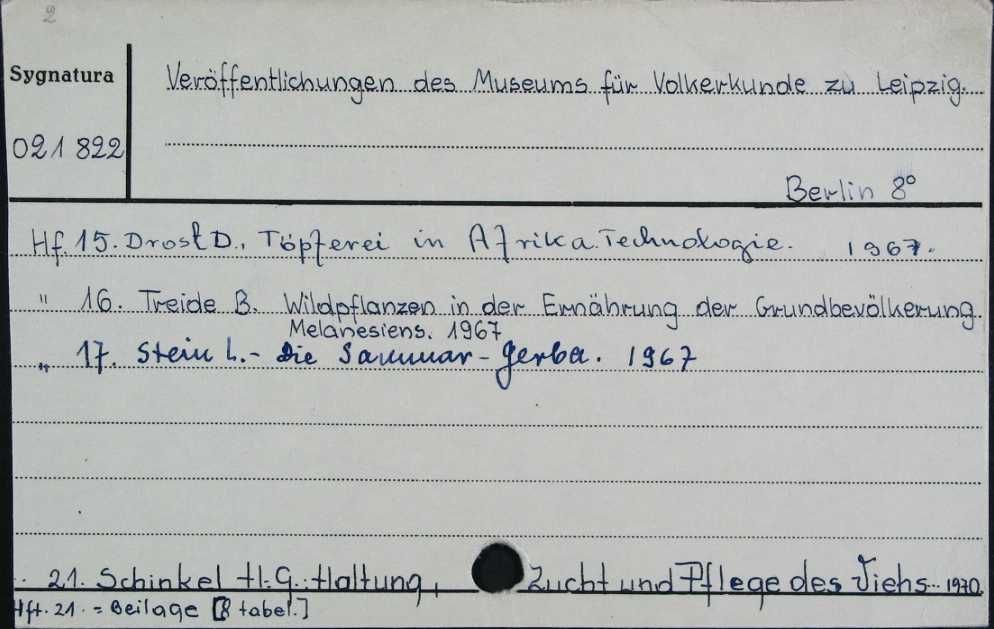 2
Sygnatura
Veröffentlichungen des Museums für Volkerkunde zu Leipzig.
021 822
Berlin 8°
Hf. 15. Drost D., Töpferei in Afrika. Technologie. 1967.
" 16. Treide B. Wildpflanzen in der Ernährung der Grundbevölkerung.
Melanesiens. 1967
" 17. Stein L. - Die Sammar-Gerba. 1967
21. Schinkel H.G. Haltung, Zucht und Pflege des Viehs. 1970.
Hft. 21. = Beilage [8 tabel.]